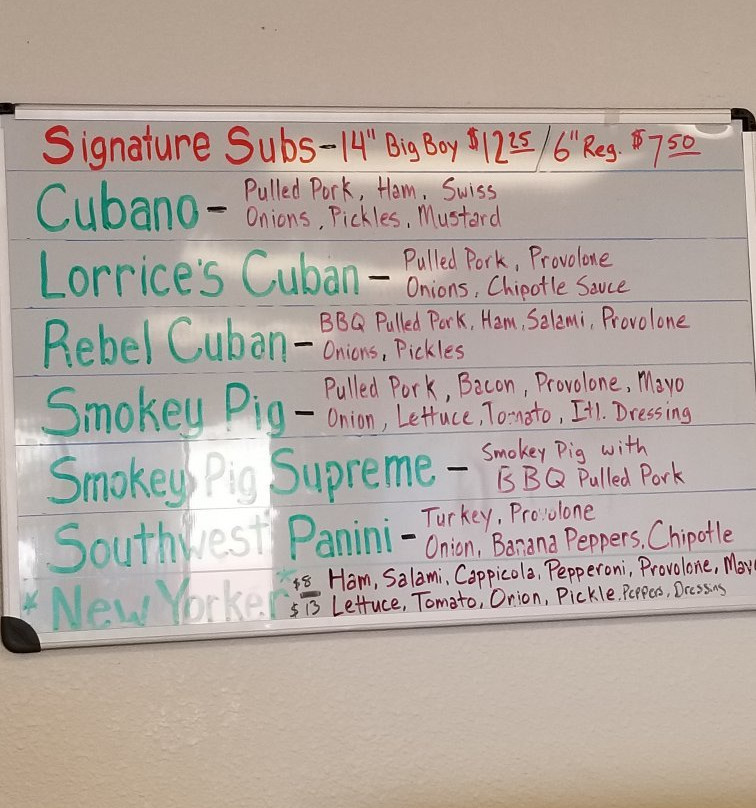 Signature Subs-14" Big Boy $12 25/6" Reg. $7 50
Cubano- Pulled Pork, Ham, Swiss
Onions, Pickles, Mustard
Lorrice's Cuban- Pulled Pork, Provolone
Onions, Chipotle Sauce
Rebel Cuban- BBQ Pulled Pork, Ham, Salami, Provolone
Onions, Pickles
Smokey Pig- Pulled Pork, Bacon, Provolone, Mayo
Onion, Lettuce, Tomato, Itl. Dressing
Smokey Pig Supreme- Smokey Pig with
BBQ Pulled Pork
Southwest Panini- Turkey, Provolone
Onion, Banana Peppers, Chipotle
*New Yorker* $8 Ham, Salami, Cappicola, Pepperoni, Provolone, May
$13 Lettuce, Tomato, Onion, Pickle, Peppers, Dressing